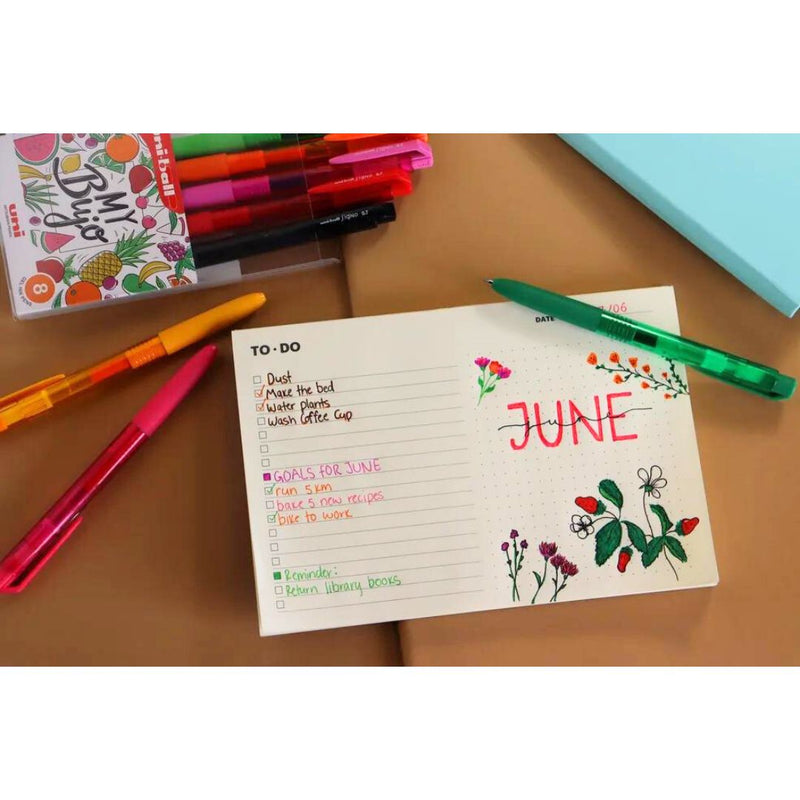 uni-ball
MY
Bujo
uni
8
TO·DO
DATE
/06
Dust
Make the bed
Water plants
Wash Coffee Cup
GOALS FOR JUNE
run 5 km
bake 5 new recipes
bike to work
Reminder:
Return library books
JUNE
june